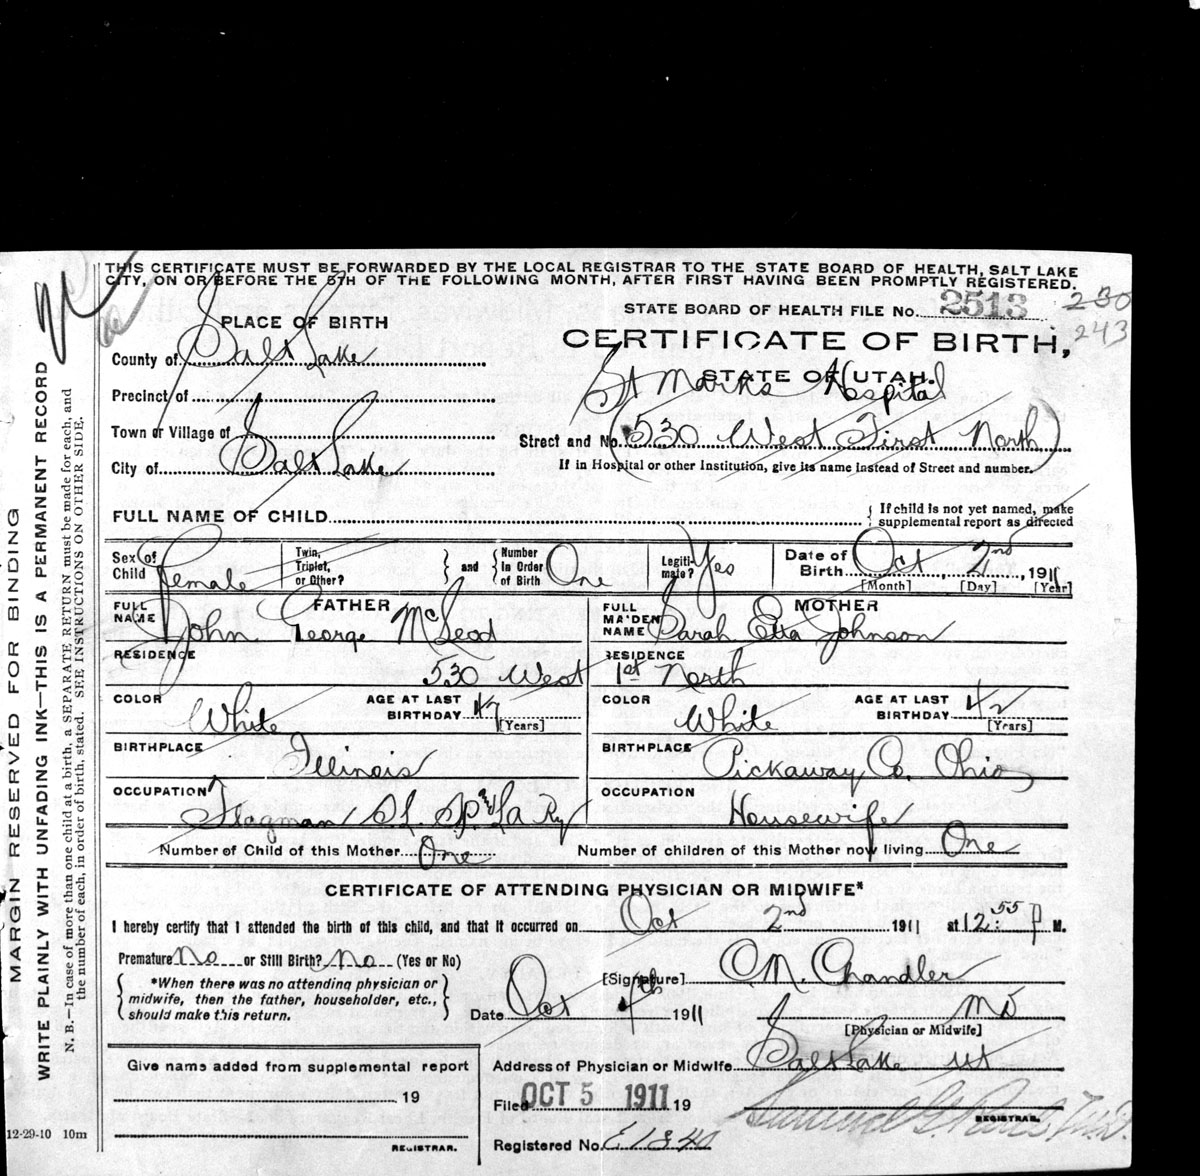 THIS CERTIFICATE MUST BE FORWARDED BY THE LOCAL REGISTRAR TO THE STATE BOARD OF HEALTH, SALT LAKE
CITY, ON OR BEFORE THE 5TH OF THE FOLLOWING MONTH, AFTER FIRST HAVING BEEN PROMPTLY REGISTERED.
STATE BOARD OF HEALTH FILE No. 2513 230
243
PLACE OF BIRTH
CERTIFICATE OF BIRTH,
STATE OF UTAH.
County of Salt Lake
St Marks Hospital
Precinct of
Town or Village of
Street and No. (530 West First North)
City of Salt Lake
If in Hospital or other Institution, give its name instead of Street and number.
FULL NAME OF CHILD
{ If child is not yet named, make
supplemental report as directed
Sex of Child Female
Twin, Triplet, or Other? } and { Number In Order of Birth One
Legitimate? Yes
Date of Birth Oct 2nd, 1911
[Month] [Day] [Year]
FATHER
FULL NAME John George McLeod
MOTHER
FULL MAIDEN NAME Sarah Etta Johnson
RESIDENCE 530 West
RESIDENCE 1st North
COLOR White AGE AT LAST BIRTHDAY 47 [Years]
COLOR White AGE AT LAST BIRTHDAY 42 [Years]
BIRTHPLACE Illinois
BIRTHPLACE Pickaway Co. Ohio
OCCUPATION Flagman S.L. SP & LA Ry
OCCUPATION Housewife
Number of Child of this Mother One
Number of children of this Mother now living One
CERTIFICATE OF ATTENDING PHYSICIAN OR MIDWIFE*
I hereby certify that I attended the birth of this child, and that it occurred on Oct 2nd 1911 at 12:55 P M.
Premature No or Still Birth? No (Yes or No)
[Signature] C.M. Chandler
{ *When there was no attending physician or
midwife, then the father, householder, etc.,
should make this return. }
Date Oct 4th 1911
MD
[Physician or Midwife]
Give name added from supplemental report
19
REGISTRAR.
Address of Physician or Midwife Salt Lake Ut
Filed OCT 5 1911 19
REGISTRAR.
Registered No. 1840
12-29-10 10m
MARGIN RESERVED FOR BINDING
WRITE PLAINLY WITH UNFADING INK—THIS IS A PERMANENT RECORD
N. B.—In case of more than one child at a birth, a SEPARATE RETURN must be made for each, and
the number of each, in order of birth, stated. SEE INSTRUCTIONS ON OTHER SIDE.